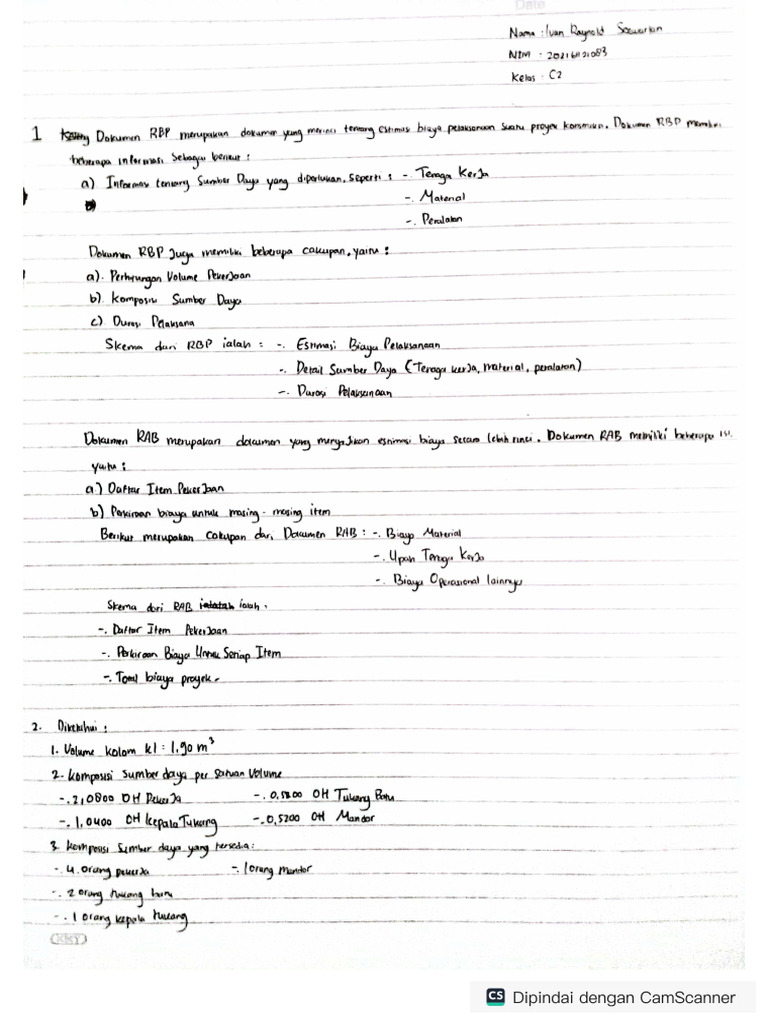 Date
Nama : Ivan Raynold Soewarlan
NIM : 20216121083
Kelas : C2
1 Dokumen RBP merupakan dokumen yang merinci tentang estimasi biaya pelaksanaan suatu proyek konstruksi. Dokumen RBP memiliki
beberapa informasi sebagai berikut :
a) Informasi tentang Sumber Daya yang diperlukan, seperti : -. Tenaga Kerja
-. Material
-. Peralatan
Dokumen RBP Juga memiliki beberapa cakupan, yaitu :
a). Perhitungan Volume Pekerjaan
b). Komposisi Sumber Daya
c). Durasi Pelaksana
Skema dari RBP ialah : -. Estimasi Biaya Pelaksanaan
-. Detail Sumber Daya (Tenaga kerja, material, peralatan)
-. Durasi Pelaksanaan
Dokumen RAB merupakan dokumen yang menyajikan estimasi biaya secara lebih rinci. Dokumen RAB memiliki beberapa isi
yaitu :
a.) Daftar Item Pekerjaan
b) Perkiraan biaya untuk masing-masing item
Berikut merupakan cakupan dari Dokumen RAB : -. Biaya Material
-. Upah Tenaga Kerja
-. Biaya Operasional lainnya
Skema dari RAB ialah :
-. Daftar Item Pekerjaan
-. Perkiraan Biaya Untuk Setiap Item
-. Total biaya proyek.
2. Diketahui :
1. Volume kolom k1 : 1,90 m³
2. Komposisi sumber daya per satuan Volume
-. 2,0800 OH Pekerja -. 0,5200 OH Tukang Batu
-. 1,0400 OH Kepala Tukang -. 0,5200 OH Mandor
3. Komposisi Sumber daya yang tersedia :
-. 4 orang pekerja -. 1 orang mandor
-. 2 orang tukang batu
-. 1 orang kepala tukang
KKY
CS Dipindai dengan CamScanner